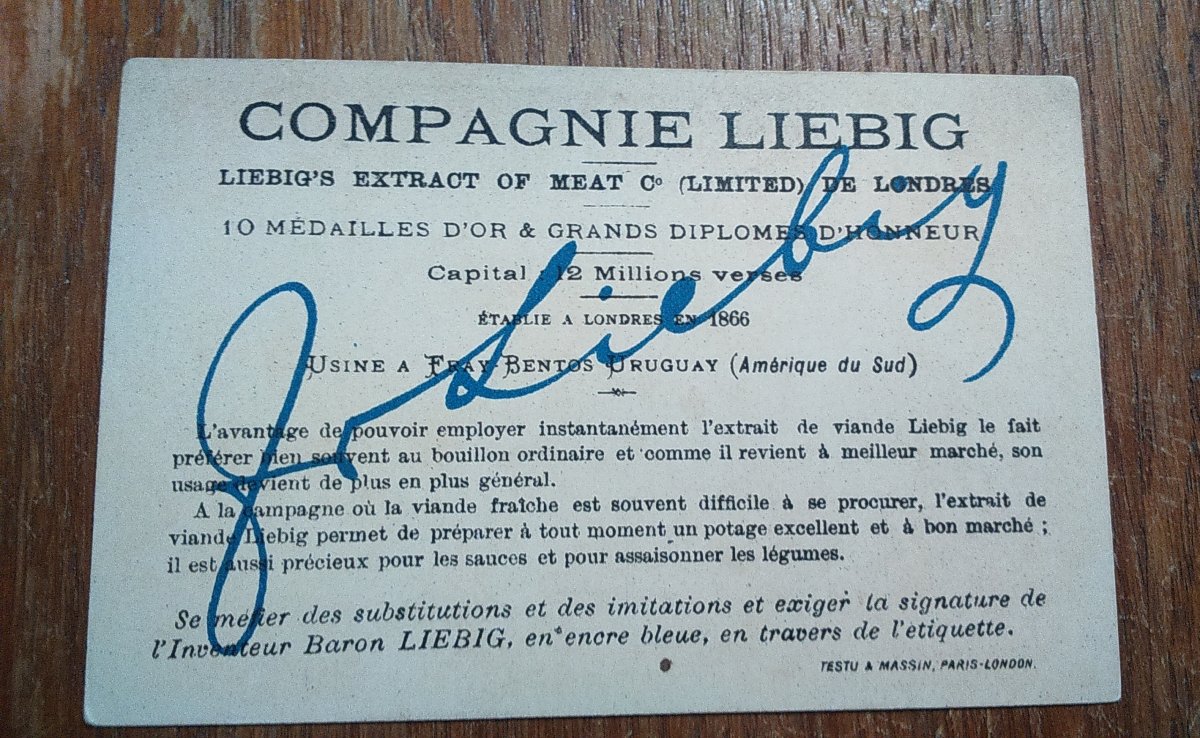 COMPAGNIE LIEBIG
LIEBIG'S EXTRACT OF MEAT Cº (LIMITED) DE LONDRES
10 MÉDAILLES D'OR & GRANDS DIPLOMES D'HONNEUR
Capital : 12 Millions versés
ÉTABLIE A LONDRES EN 1866
USINE A FRAY-BENTOS URUGUAY (Amérique du Sud)
L'avantage de pouvoir employer instantanément l'extrait de viande Liebig le fait
préférer bien souvent au bouillon ordinaire et comme il revient à meilleur marché, son
usage devient de plus en plus général.
A la campagne où la viande fraîche est souvent difficile à se procurer, l'extrait de
viande Liebig permet de préparer à tout moment un potage excellent et à bon marché ;
il est aussi précieux pour les sauces et pour assaisonner les légumes.
Se méfier des substitutions et des imitations et exiger la signature de
l'Inventeur Baron LIEBIG, en encre bleue, en travers de l'étiquette.
TESTU & MASSIN, PARIS-LONDON.
J v Liebig